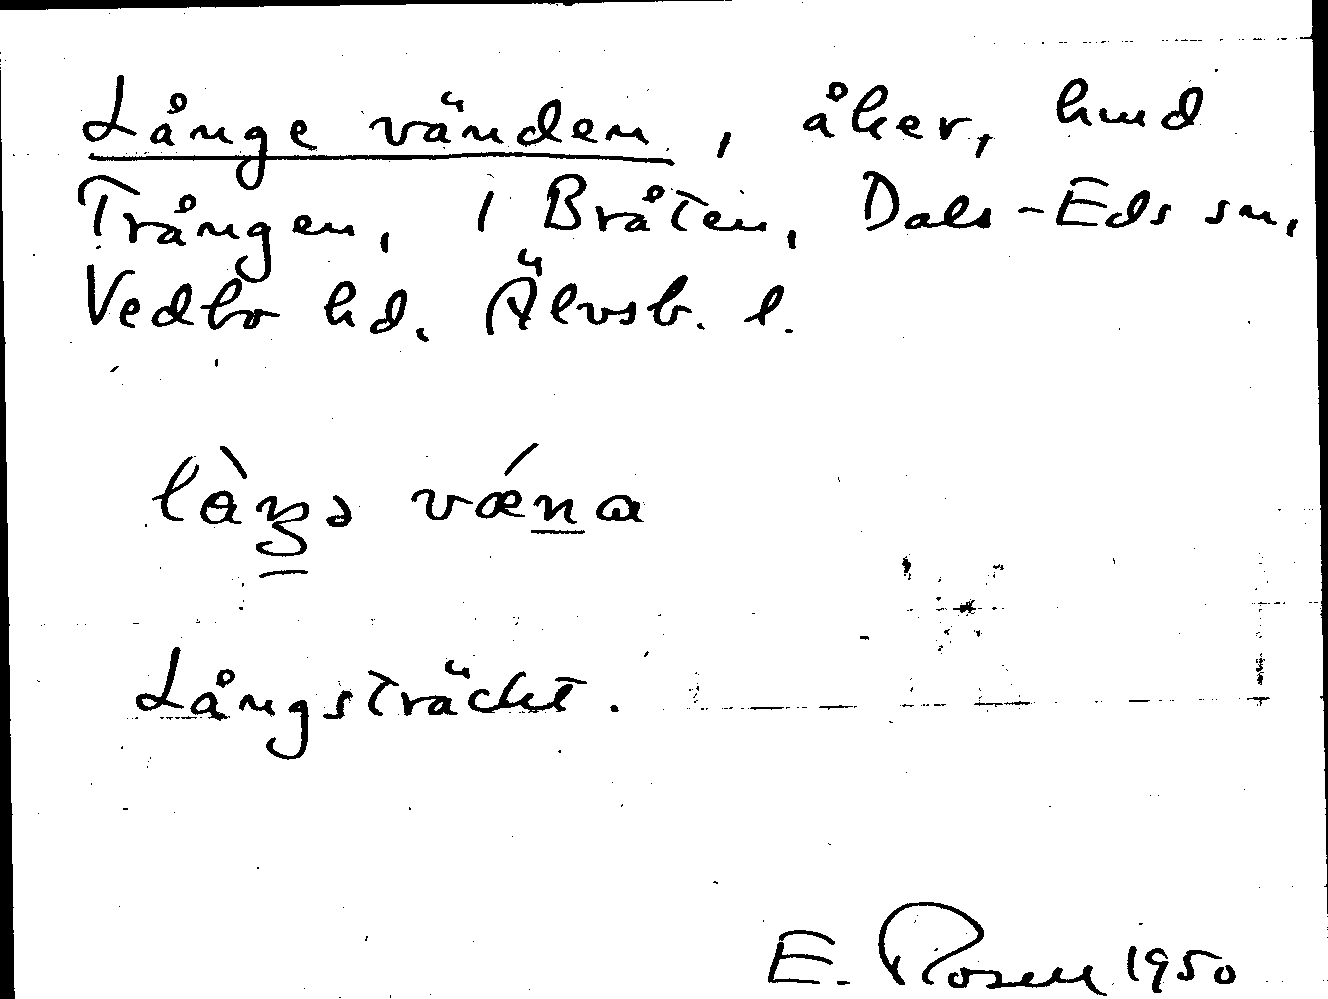 Långe vänden, åker, hmd
Trången, 1 Bråten, Dals-Eds sn,
Vedbo hd. Älvsb. l.
làŋə vǽna
Långsträckt.
E. Rosen 1950